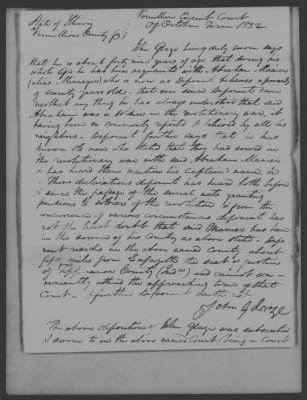 State of Illinois
Vermillion County Sct
Vermillion Circuit Court
of October Term 1832
John Glaze being duly sworn says
that he is about forty nine years of age that during his
whole life he has been acquainted with Abraham Manser
(alias Manezer) who is now as Deponent believes upwards
of seventy years old. that ever since Deponent can
recollect any thing he has always understood that said
Abraham was a soldier in the revolutionary war, it
having been so commonly reported & believed by all his
neighbors. Deponent further says that he has
known men who stated that they had served in
the revolutionary war with said Abraham Manser
& has heard them mention his Captain's name
These declarations deponent has heard both before
& since the passage of the several acts granting
pensions to others of the revolution & from the
concurrence of various circumstances deponent has
not the least doubt that said Manser has been
in the service of his country as above stated. Depo
nent resides in the above named County about
fifty miles from Lafayette the seat of justice
of Tippecanoe County (Ind) and cannot con
veniently attend the approaching term of that
Court. & further Deponent saith not
John Glaze
The above deposition of John Glaze was subscribed
& sworn to in the above named Court (being a Court